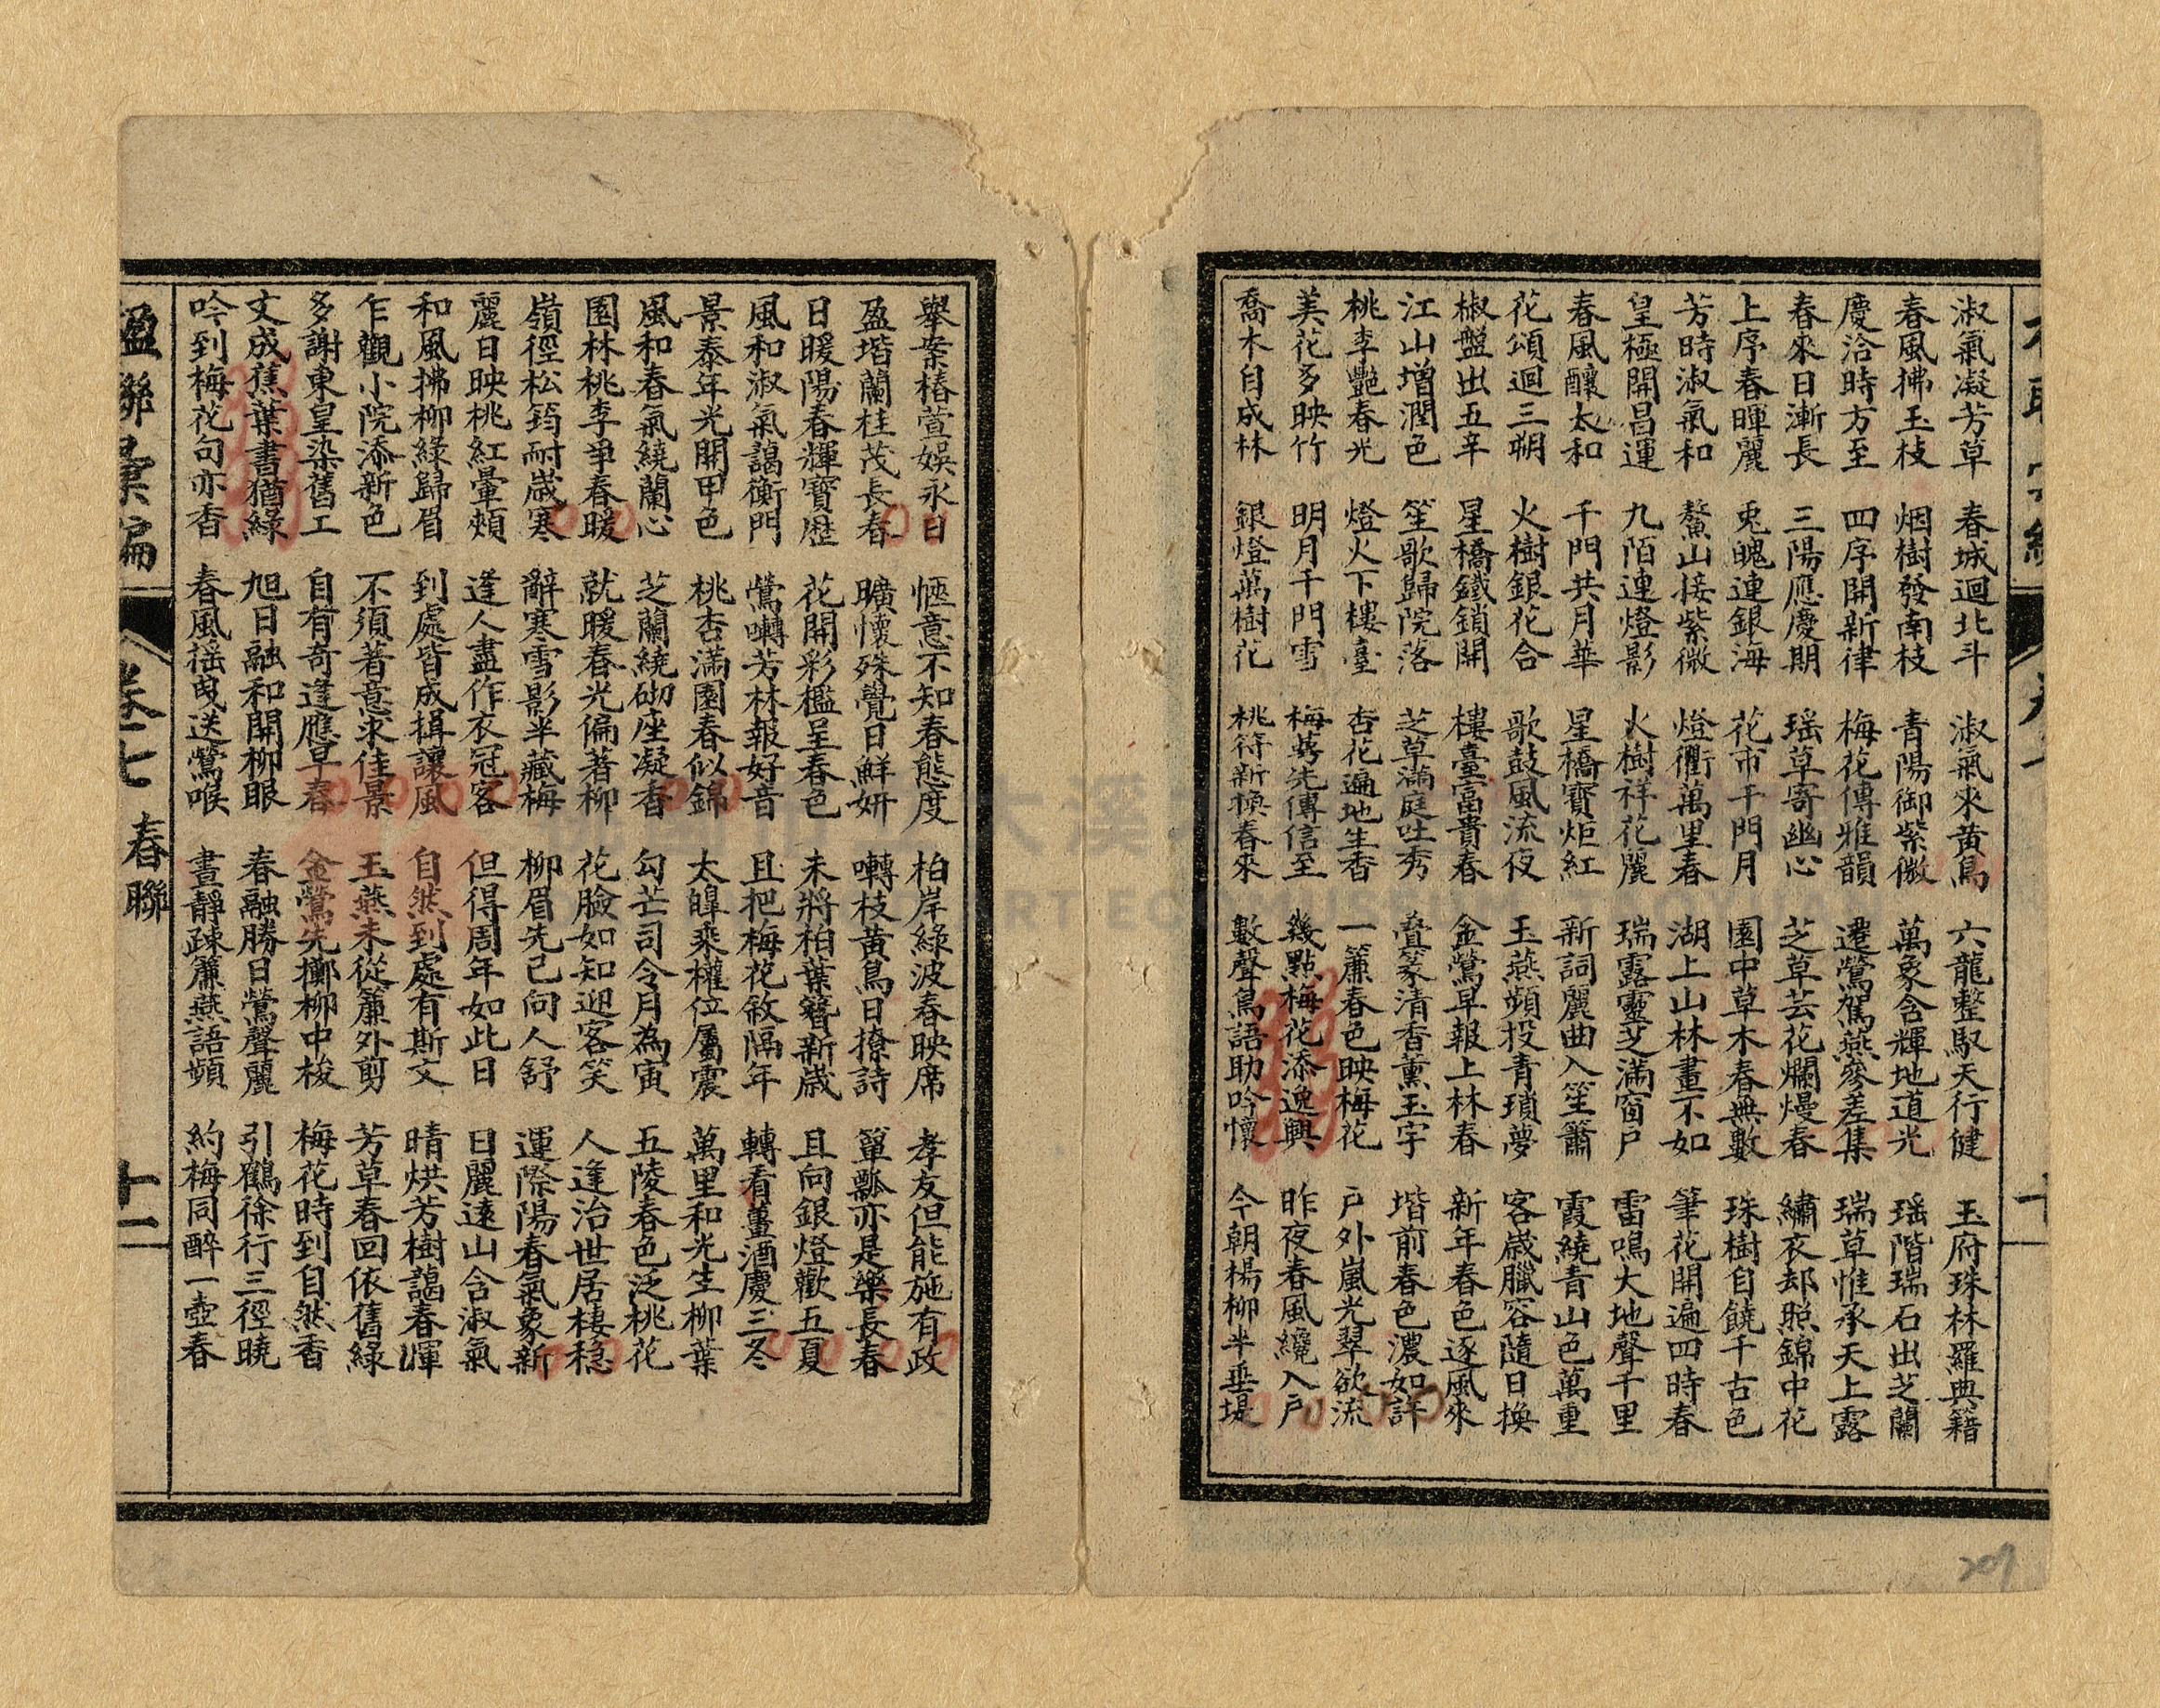 淑氣凝芳草　春城迴北斗　淑氣來黃鳥　六龍整馭天行健　玉府珠林羅典籍
春風拂玉枝　烟樹發南枝　青陽御紫微　萬象含輝地道光　瑶階瑞石出芝蘭
慶洽時方至　四序開新律　梅花傳雅韻　遷鶯賀燕參差集　瑞草惟承天上露
春來日漸長　三陽應慶期　瑶草寄幽心　芝草芸花爛熳春　繡衣却照錦中花
上序春暉麗　兎魄連銀海　花市千門月　園中草木春無數　珠樹自饒千古色
芳時淑氣和　鰲山接紫微　燈衢萬里春　湖上山林畫不如　筆花開遍四時春
皇極開昌運　九陌連燈影　火樹祥花麗　瑞露靈芝滿窗戶　雷鳴大地聲千里
春風釀太和　千門共月華　星橋寶炬紅　新詞麗曲入笙簫　霞繞青山色萬重
花頌迴三朔　火樹銀花合　歌鼓風流夜　玉燕頻投青瑣夢　客歲臘容隨日換
椒盤出五辛　星橋鐵鎖開　樓臺富貴春　金鶯早報上林春　新年春色逐風來
江山增潤色　笙歌歸院落　芝草滿庭吐秀　叠篆清香薰玉宇　堦前春色濃如許
桃李艷春光　燈火下樓臺　杏花遍地生香　一簾春色映梅花　戶外嵐光翠欲流
美花多映竹　明月千門雪　梅萼先傳信至　幾點梅花添逸興　昨夜春風纔入戶
喬木自成林　銀燈萬樹花　桃符新換春來　數聲鳥語助吟懷　今朝楊柳半垂堤
舉案椿萱娛永日　愜意不知春態度　柏岸綠波春映席　孝友但能施有政
盈堦蘭桂茂長春　曠懷殊覺日鮮妍　囀枝黃鳥日撩詩　簞瓢亦是樂長春
日暖陽春輝寶歷　花開彩檻呈春色　未將柏葉簪新歲　且向銀燈歡五夏
風和淑氣藹衡門　鶯囀芳林報好音　且把梅花敘隔年　轉看薑酒慶三冬
景泰年光開甲色　桃杏滿園春似錦　太皥乘權位屬震　萬里和光生柳葉
風和春氣繞蘭心　芝蘭繞砌座凝香　勾芒司令月為寅　五陵春色泛桃花
園林桃李爭春暖　就暖春光偏著柳　花臉如知迎客笑　人逢治世居棲穏
嶺徑松筠耐歲寒　辭寒雪影半藏梅　柳眉先已向人舒　運際陽春氣象新
麗日映桃紅暈頰　逢人盡作衣冠客　但得周年如此日　日麗遠山含淑氣
和風拂柳綠歸眉　到處皆成揖讓風　自然到處有斯文　晴烘芳樹藹春暉
乍觀小院添新色　不須著意求佳景　玉燕未從簾外剪　芳草春回依舊綠
多謝東皇染舊工　自有奇逢應早春　金鶯先擲柳中梭　梅花時到自然香
文成蕉葉書猶綠　旭日融和開柳眼　春融勝日鶯聲麗　引鶴徐行三徑曉
吟到梅花句亦香　春風搖曳送鶯喉　晝靜疎簾燕語頻　約梅同醉一壺春
楹聯彙編　卷七　春聯　十一
207